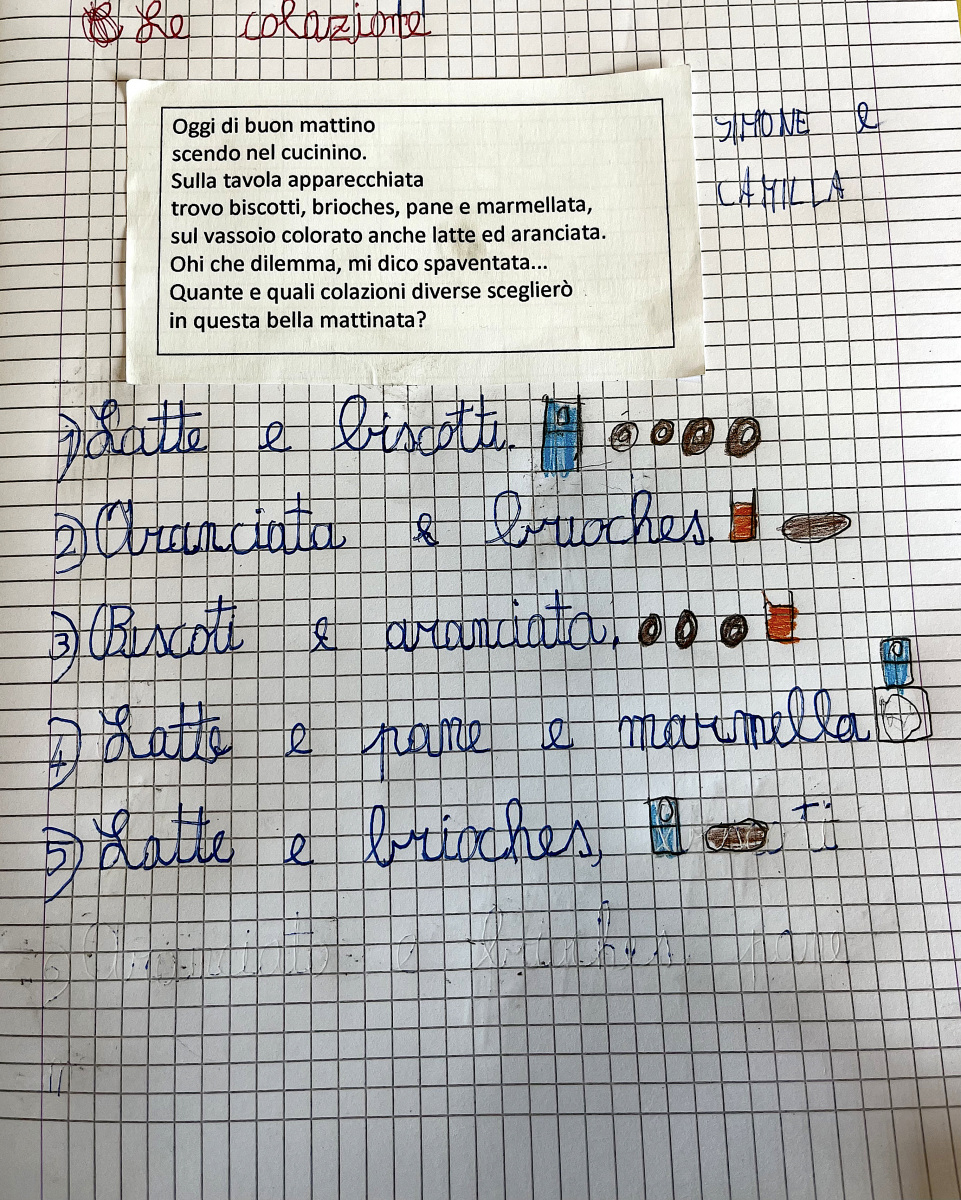 Le colazione
Oggi di buon mattino
scendo nel cucinino.
Sulla tavola apparecchiata
trovo biscotti, brioches, pane e marmellata,
sul vassoio colorato anche latte ed aranciata.
Ohi che dilemma, mi dico spaventata...
Quante e quali colazioni diverse sceglierò
in questa bella mattinata?
SIMONE e
CAMILLA
1) Latte e biscotti.
2) Aranciata e brioches.
3) Biscoti e aranciata.
4) Latte e pane e marmella
5) Latte e brioches,